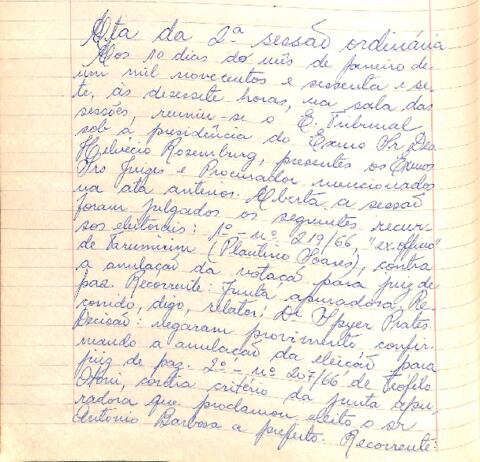 Ata da 2ª sessão ordinária
Aos 10 dias do mês de janeiro de
um mil novecentos e sessenta e se-
te, às desessete horas, na sala das
sessões, reuniu-se o E. Tribunal
sob a presidência do Exmo Sr Des
Helvécio Rosemburg, presentes os Exmos
Srs Juizes e Procurador mencionados
na ata anterior. Aberta a sessão
foram julgados os seguintes recur-
sos eleitorais: 1º - nº 219/66, "ex-officio"
de Tarumirim (Plautino Soares), contra
a anulação da votação para juiz de
paz. Recorrente: Junta apuradora. Re-
corrido, digo, relator: Dr Spyer Prates.
Decisão: negaram provimento confir-
mando a anulação da eleição para
juiz de paz. 2º - nº 207/66 de Teófilo
Otoni, contra critério da junta apu-
radora que proclamou eleito o sr
Antônio Barbosa a prefeito. Recorrente: